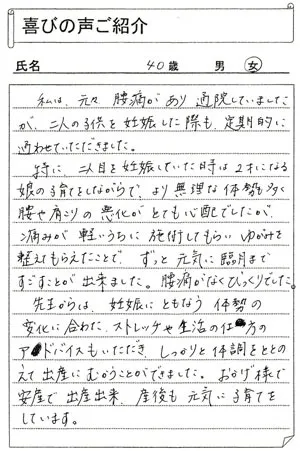 喜びの声ご紹介
氏名 40歳 男 女
私は、元々 腰痛があり 通院していました
が、二人の子供を妊娠した際も、定期的に
通わせていただきました。
特に、二人目を妊娠していた時は2才になる
娘の子育てをしながらで、より無理な体勢も多く
腰や肩こりの悪化がとても心配でしたが、
痛みが軽いうちに施術してもらい ゆがみを
整えてもらえたことで、ずっと元気に臨月まで
すごすことが出来ました。腰痛がなくびっくりでした。
先生からは、妊娠にともなう 体勢の
変化に合わた、ストレッチや生活の仕方の
アドバイスもいただき、しっかりと体調をととの
えて出産にむかうことができました。おかげ様で
安産で出産出来、産後も元気に子育てを
しています。